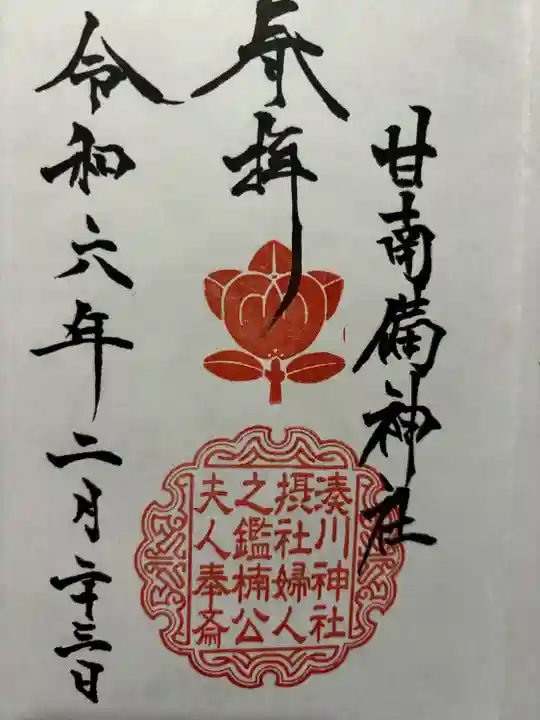 甘南備神社
奉拝
湊川神社
摂社婦人
之鑑楠公
夫人奉斎
令和六年二月二十三日